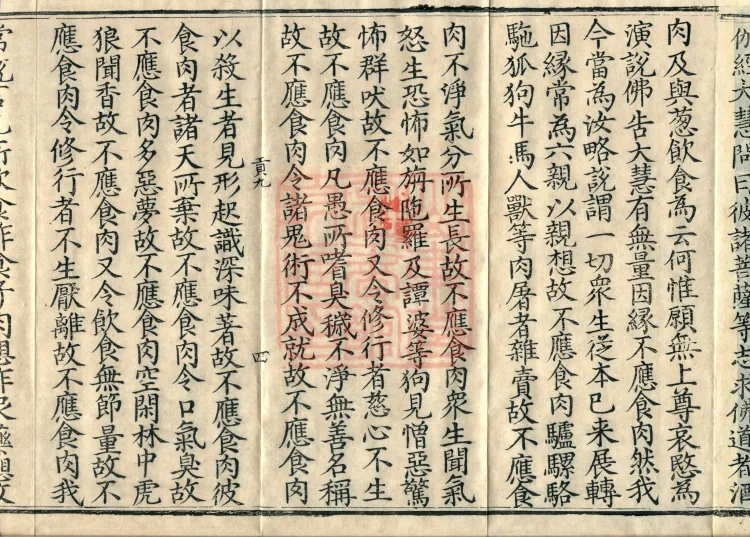 伽經大慧問曰彼諸菩薩等志求佛道者酒
肉及與葱飲食為云何惟願無上尊哀愍為
演說佛告大慧有無量因緣不應食肉然我
今當為汝略說謂一切眾生從本已来展轉
因緣常為六親以親想故不應食肉驢騾駱
駞狐狗牛馬人獸等肉屠者雜賣故不應食
肉不淨氣分所生長故不應食肉眾生聞氣
怒生恐怖如旃陁羅及譚婆等狗見憎惡驚
怖群吠故不應食肉又令修行者慈心不生
故不應食肉凡愚所嗜臭穢不淨無善名稱
故不應食肉令諸呪術不成就故不應食肉
貢九 四
以殺生者見形起識深味著故不應食肉彼
食肉者諸天所棄故不應食肉令口氣臭故
不應食肉多惡夢故不應食肉空閑林中虎
狼聞香故不應食肉又令飲食無節量故不
應食肉令修行者不生厭離故不應食肉我
常說言凡所飲食作食子肉想作服藥想故